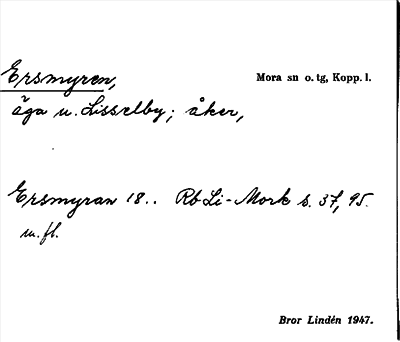 Ersmyren, Mora sn o. tg, Kopp. l.
äga u. Lisselby; åker,
Ersmyran 18.. Rb Li-Mork s. 37, 95.
m.fl.
Bror Lindén 1947.